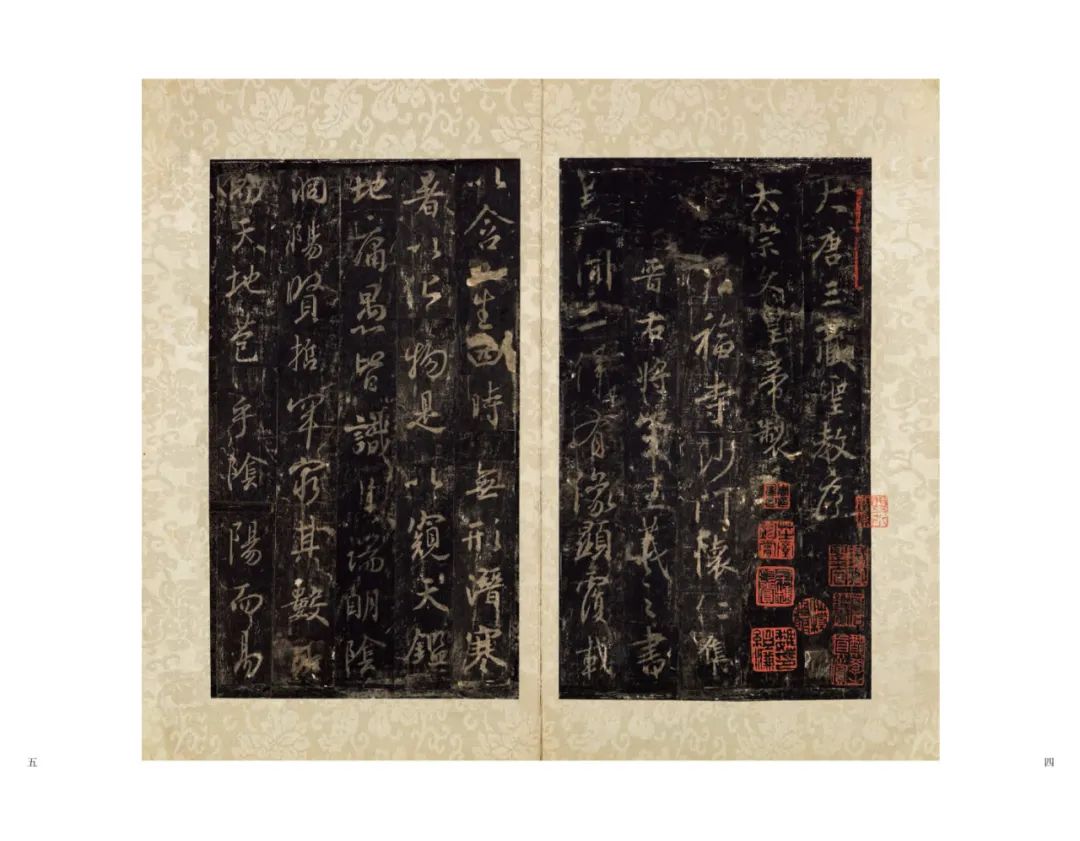 大唐三藏聖教序
太宗文皇帝製
弘福寺沙門懷仁集
晉右將軍王羲之書
蓋聞二儀有像顯覆載
以含生四時無形潛寒
暑以化物是以窺天鑑
地庸愚皆識其端明陰
洞陽賢哲罕窮其數然
而天地苞乎陰陽而易
四
五